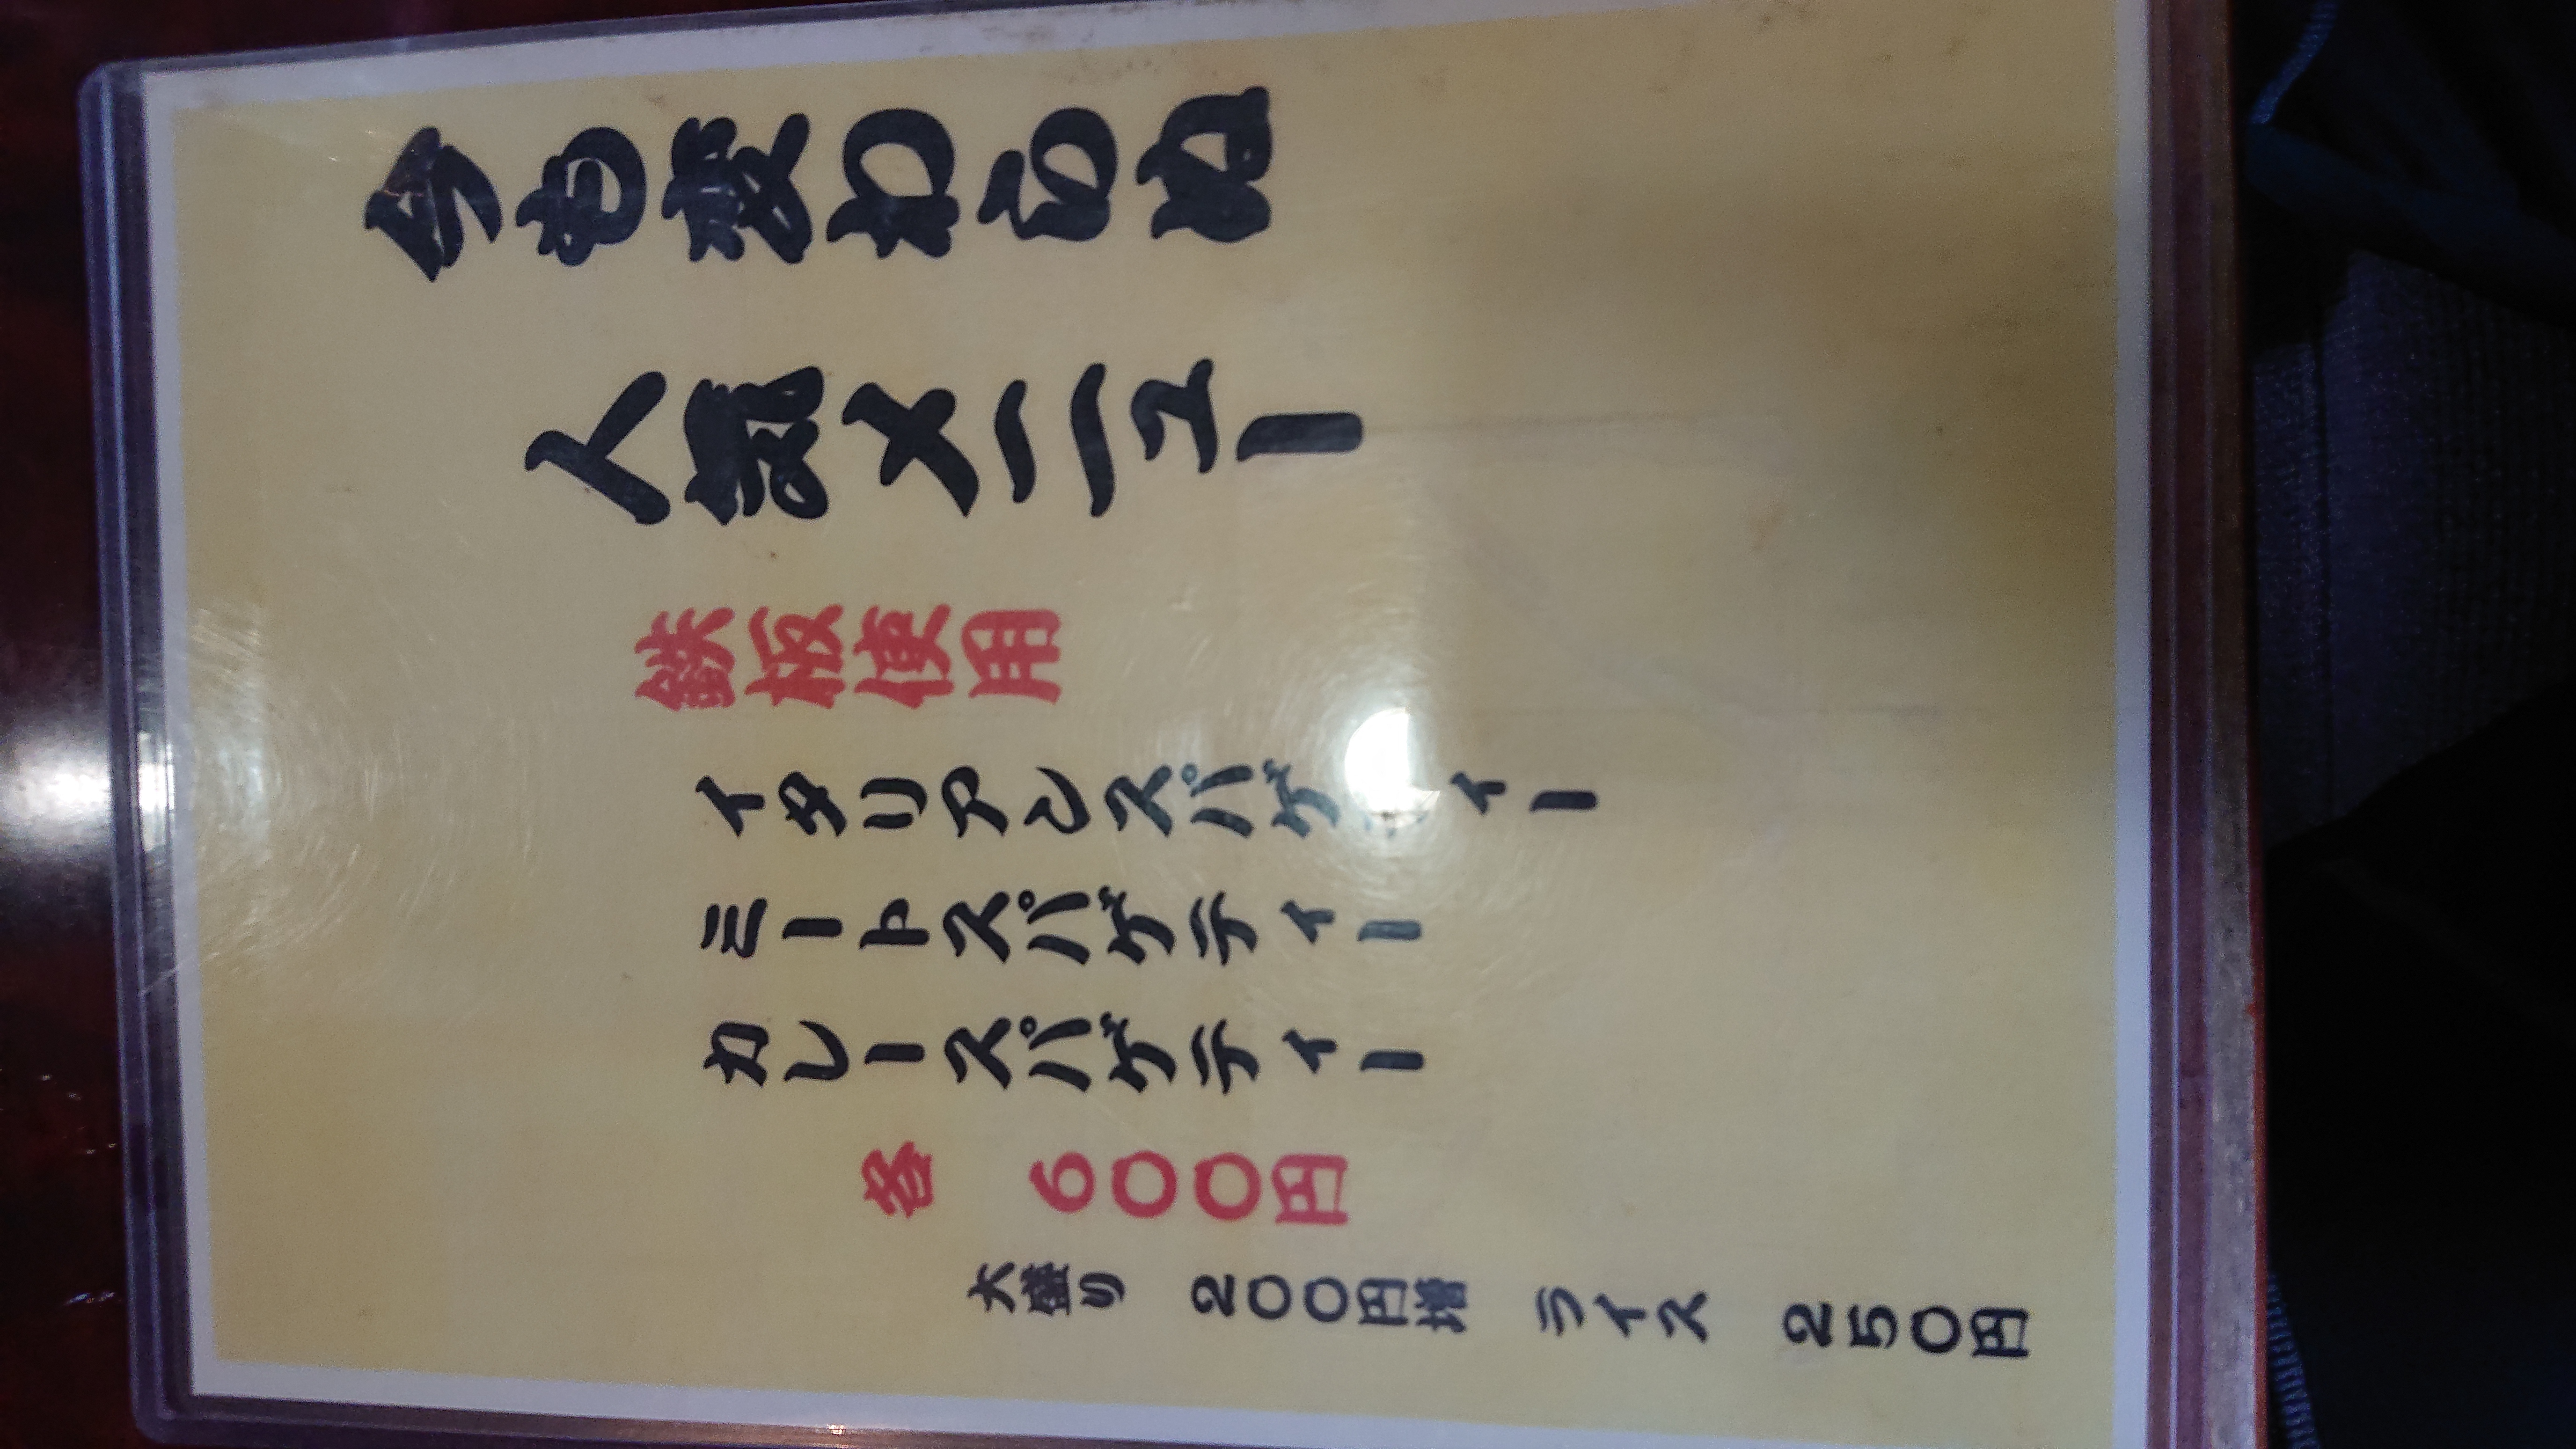 今も変わらぬ
人気メニュー
鉄板使用
イタリアンスパゲティー
ミートスパゲティー
カレースパゲティー
各 600円
大盛り 200円増 ライス 250円